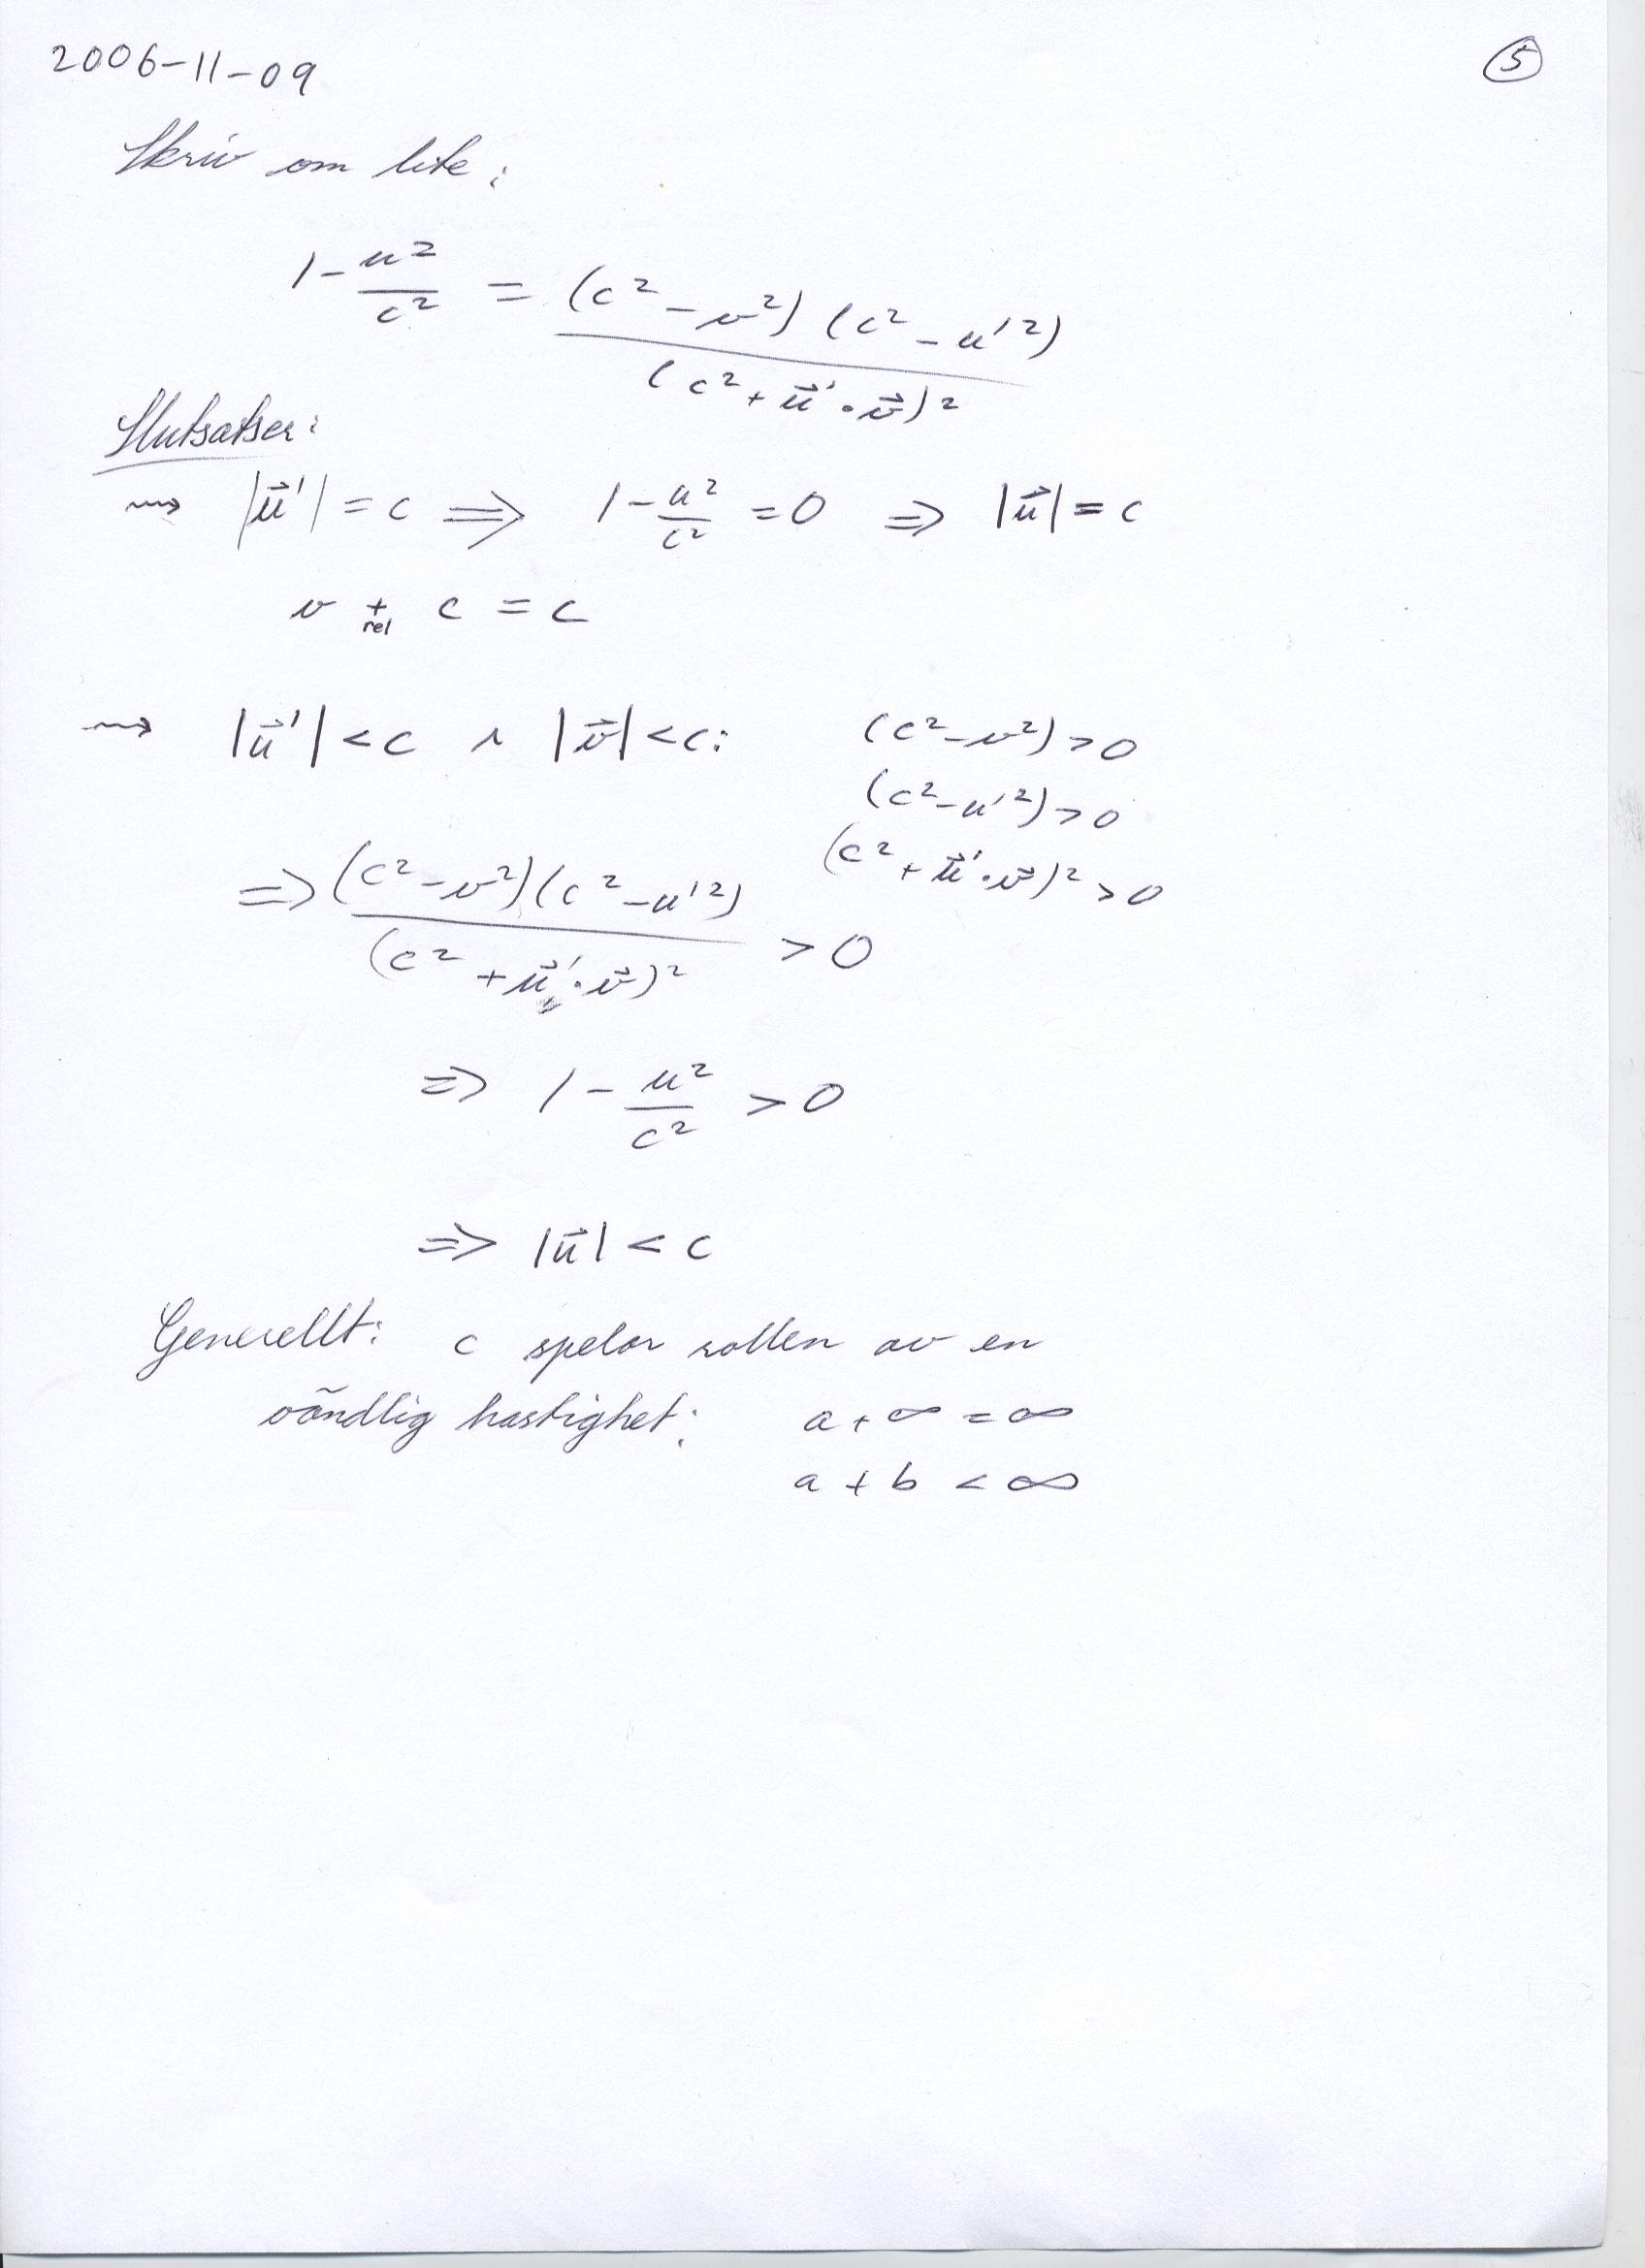 2006-11-09
⑤
Skriv om lite:
1 - u²/c² = (c² - v²)(c² - u'²) / (c² + u⃗'·v⃗)²
Slutsatser:
⇝ |u⃗'| = c ⇒ 1 - u²/c² = 0 ⇒ |u⃗| = c
v +rel c = c
⇝ |u⃗'| < c ∧ |v⃗| < c: (c² - v²) > 0
(c² - u'²) > 0
(c² + u⃗'·v⃗)² > 0
⇒ (c² - v²)(c² - u'²) / (c² + u⃗'·v⃗)² > 0
⇒ 1 - u²/c² > 0
⇒ |u⃗| < c
Generellt: c spelar rollen av en
oändlig hastighet: a + ∞ = ∞
a + b < ∞